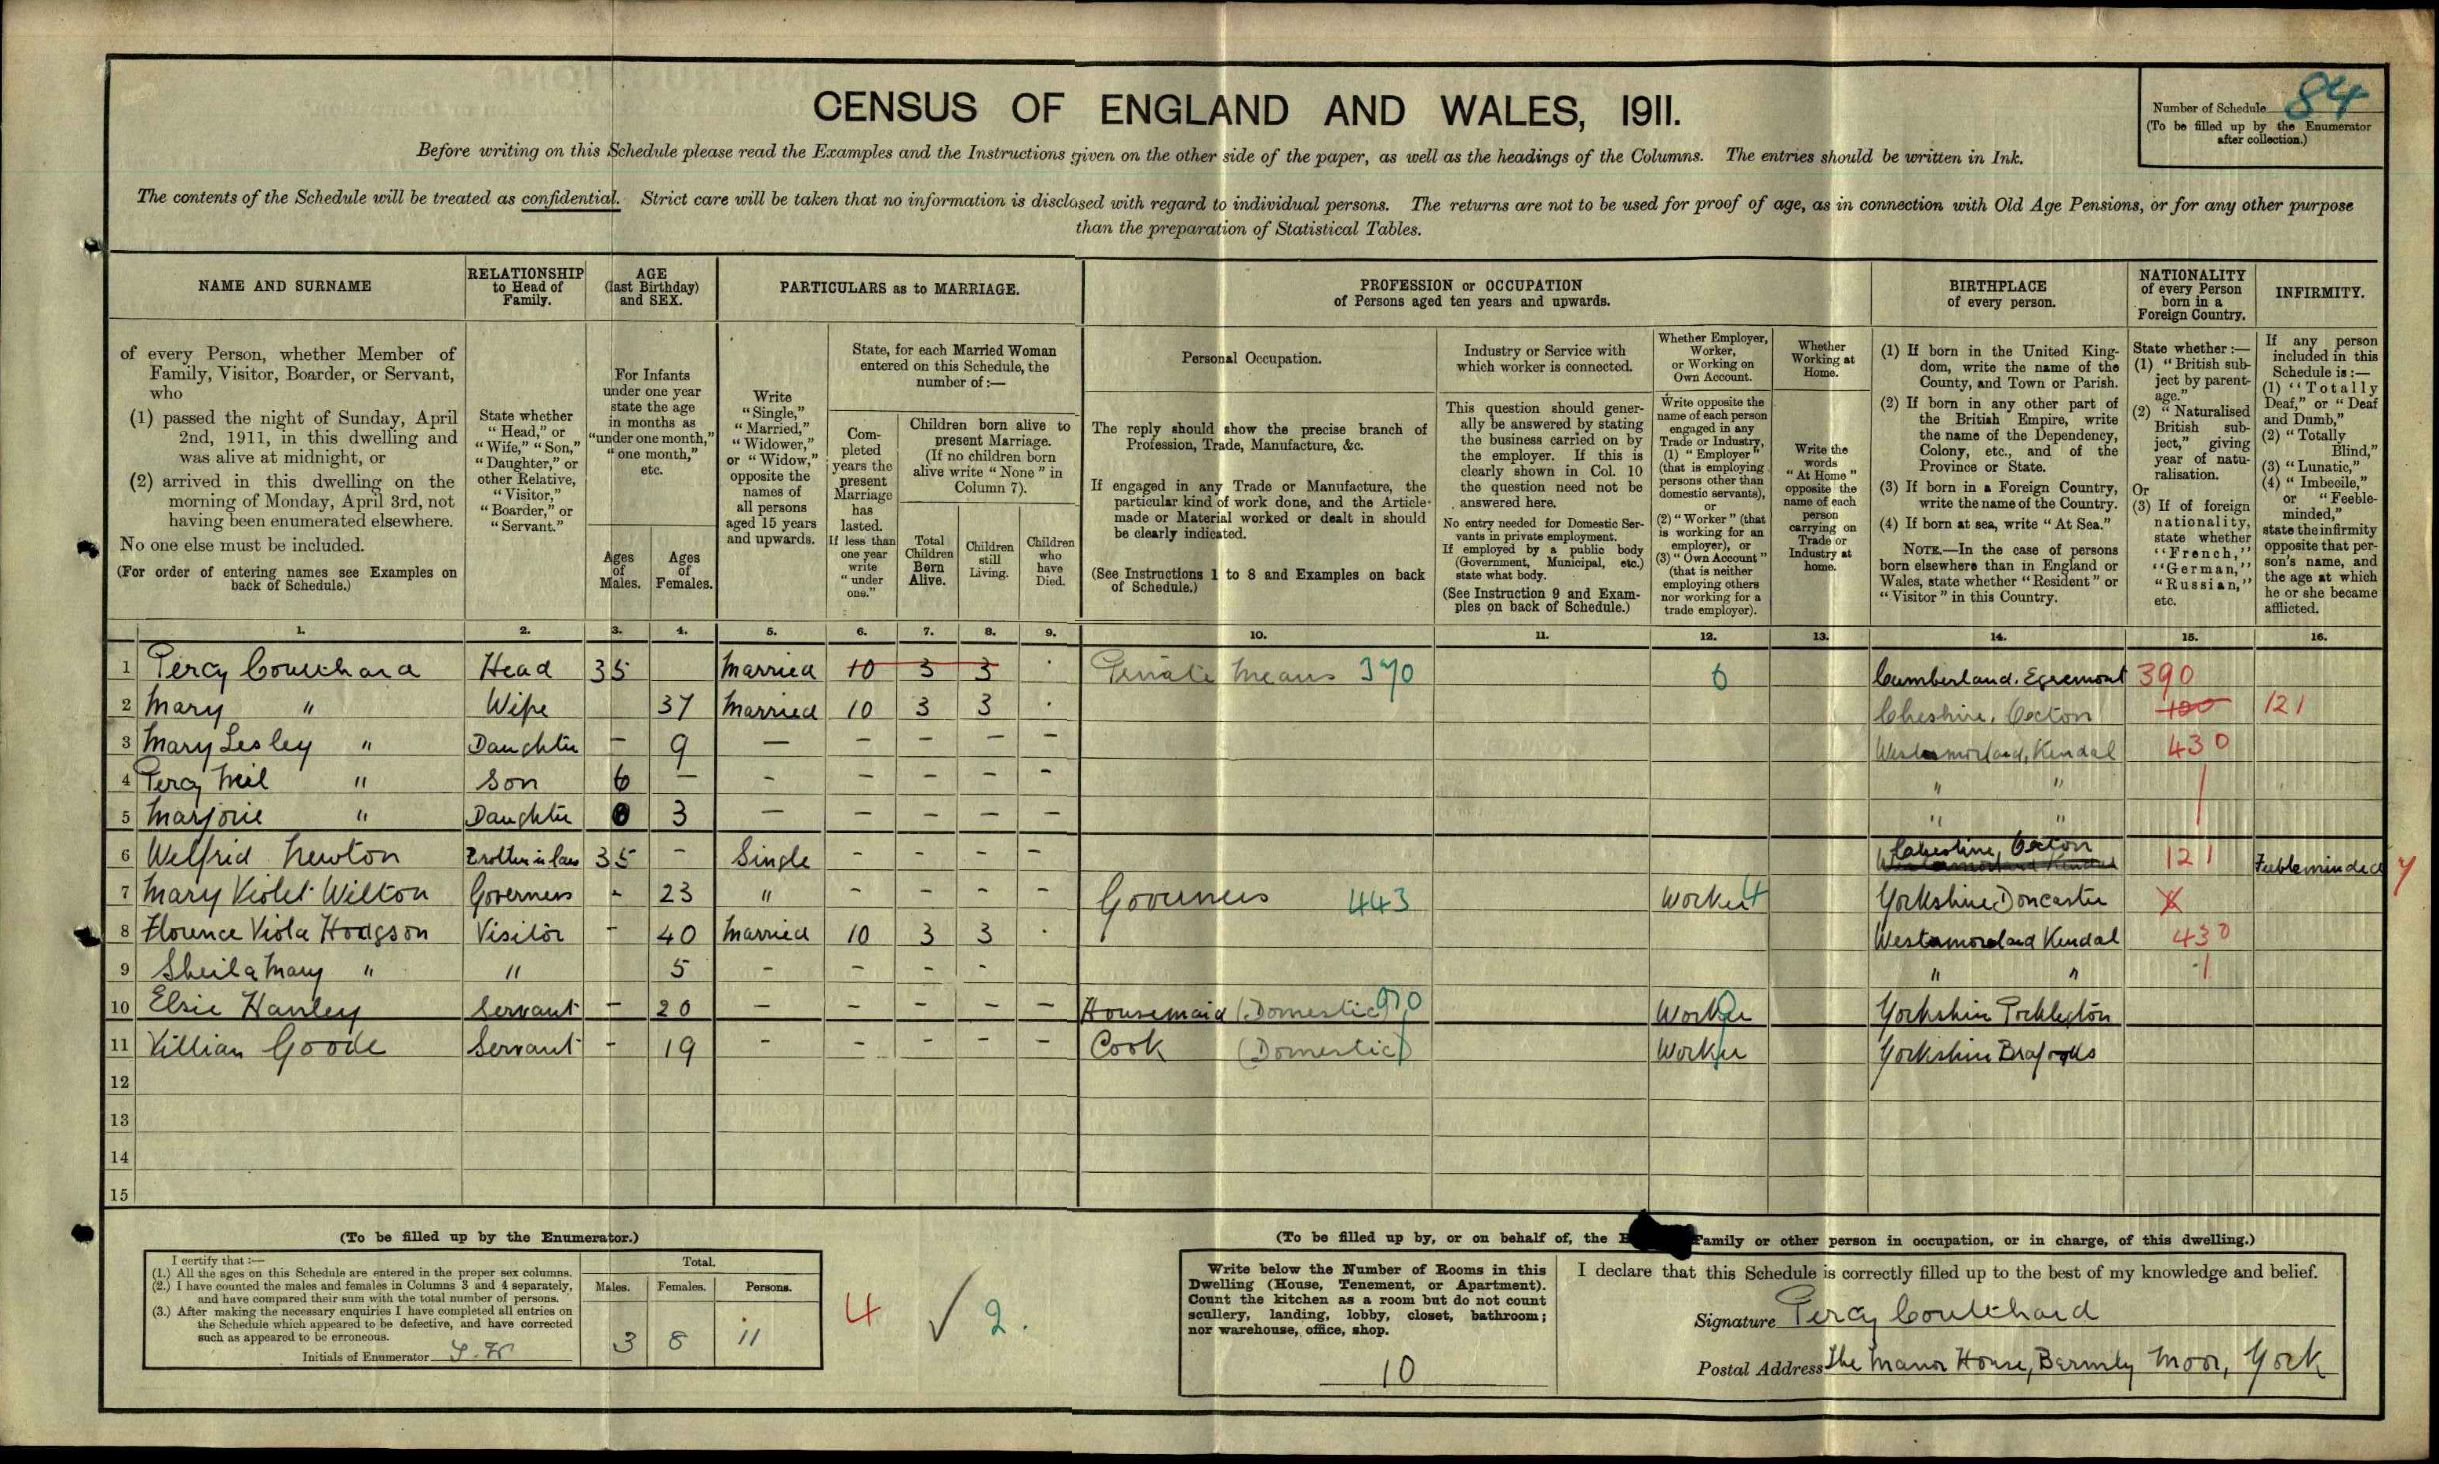 84
Number of Schedule
(To be filled up by the Enumerator
after collection.)
CENSUS OF ENGLAND AND WALES, 1911.
Before writing on this Schedule please read the Examples and the Instructions given on the other side of the paper, as well as the headings of the Columns. The entries should be written in Ink.
The contents of the Schedule will be treated as confidential. Strict care will be taken that no information is disclosed with regard to individual persons. The returns are not to be used for proof of age, as in connection with Old Age Pensions, or for any other purpose
than the preparation of Statistical Tables.
NAME AND SURNAME
of every Person, whether Member of
Family, Visitor, Boarder, or Servant,
who
(1) passed the night of Sunday, April
2nd, 1911, in this dwelling and
was alive at midnight, or
(2) arrived in this dwelling on the
morning of Monday, April 3rd, not
having been enumerated elsewhere.
No one else must be included.
(For order of entering names see Examples on
back of Schedule.)
RELATIONSHIP
to Head of
Family.
State whether
"Head," or
"Wife," "Son,"
"Daughter," or
other Relative,
"Visitor,"
"Boarder," or
"Servant."
AGE
(last Birthday)
and SEX.
For Infants
under one year
state the age
in months as
"under one month,"
"one month,"
etc.
Ages
of
Males.
Ages
of
Females.
PARTICULARS as to MARRIAGE.
Write
"Single,"
"Married,"
"Widower,"
or "Widow,"
opposite the
names of
all persons
aged 15 years
and upwards.
State, for each Married Woman
entered on this Schedule, the
number of:—
Com-
pleted
years the
present
Marriage
has
lasted.
If less than
one year
write
"under
one."
Children born alive to
present Marriage.
(If no children born
alive write "None" in
Column 7).
Total
Children
Born
Alive.
Children
still
Living.
Children
who
have
Died.
PROFESSION or OCCUPATION
of Persons aged ten years and upwards.
Personal Occupation.
The reply should show the precise branch of
Profession, Trade, Manufacture, &c.
If engaged in any Trade or Manufacture, the
particular kind of work done, and the Article
made or Material worked or dealt in should
be clearly indicated.
(See Instructions 1 to 8 and Examples on back
of Schedule.)
Industry or Service with
which worker is connected.
This question should gener-
ally be answered by stating
the business carried on by
the employer. If this is
clearly shown in Col. 10
the question need not be
answered here.
No entry needed for Domestic Ser-
vants in private employment.
If employed by a public body
(Government, Municipal, etc.)
state what body.
(See Instruction 9 and Exam-
ples on back of Schedule.)
Whether Employer,
Worker,
or Working on
Own Account.
Write opposite the
name of each person
engaged in any
Trade or Industry,
(1) "Employer"
(that is employing
persons other than
domestic servants),
or
(2) "Worker" (that
is working for an
employer), or
(3) "Own Account"
(that is neither
employing others
nor working for a
trade employer).
Whether
Working at
Home.
Write the
words
"At Home"
opposite the
name of each
person
carrying on
Trade or
Industry at
home.
BIRTHPLACE
of every person.
(1) If born in the United King-
dom, write the name of the
County, and Town or Parish.
(2) If born in any other part of
the British Empire, write
the name of the Dependency,
Colony, etc., and of the
Province or State.
(3) If born in a Foreign Country,
write the name of the Country.
(4) If born at sea, write "At Sea."
NOTE.—In the case of persons
born elsewhere than in England or
Wales, state whether "Resident" or
"Visitor" in this Country.
NATIONALITY
of every Person
born in a
Foreign Country.
State whether:—
(1) "British sub-
ject by parent-
age."
(2) "Naturalised
British sub-
ject," giving
year of natu-
ralisation.
Or
(3) If of foreign
nationality,
state whether
"French,"
"German,"
"Russian,"
etc.
INFIRMITY.
If any person
included in this
Schedule is:—
(1) "Totally
Deaf," or "Deaf
and Dumb,"
(2) "Totally
Blind,"
(3) "Lunatic,"
(4) "Imbecile,"
or "Feeble-
minded,"
state the infirmity
opposite that per-
son's name, and
the age at which
he or she became
afflicted.
1. 2. 3. 4. 5. 6. 7. 8. 9. 10. 11. 12. 13. 14. 15. 16.
1 Percy Coulthard Head 35 Married 10 3 3 Private Means 370 0 Cumberland. Egremont 390
2 Mary " Wife 37 Married 10 3 3 Cheshire, Oxton 100 121
3 Mary Lesley " Daughter – 9 — – – – – Westmorland, Kendal 430
4 Percy Neil " Son 6 – – – – – – " "
5 Marjorie " Daughter 3 — – – – – " "
6 Welfrid Newton Brother in law 35 – Single – – – – Cheshire, Oxton 121 Feebleminded
7 Mary Violet Wilton Governess – 23 " – – – – Governess 443 Worker Yorkshire Doncaster
8 Florence Viola Hodgson Visitor – 40 Married 10 3 3 Westmorland Kendal 430
9 Sheila Mary " " 5 – – – – " "
10 Elsie Hanley Servant – 20 – – – – – Housemaid (Domestic) Worker Yorkshire
11 Lillian Goode Servant – 19 – – – – – Cook (Domestic) Worker Yorkshire
12
13
14
15
(To be filled up by the Enumerator.)
I certify that:—
(1.) All the ages on this Schedule are entered in the proper sex columns.
(2.) I have counted the males and females in Columns 3 and 4 separately,
and have compared their sum with the total number of persons.
(3.) After making the necessary enquiries I have completed all entries on
the Schedule which appeared to be defective, and have corrected
such as appeared to be erroneous.
Initials of Enumerator
Total.
Males. Females. Persons.
3 8 11
4 ✓ 2.
(To be filled up by, or on behalf of, the Family or other person in occupation, or in charge, of this dwelling.)
Write below the Number of Rooms in this
Dwelling (House, Tenement, or Apartment).
Count the kitchen as a room but do not count
scullery, landing, lobby, closet, bathroom;
nor warehouse, office, shop.
10
I declare that this Schedule is correctly filled up to the best of my knowledge and belief.
Signature Percy Coulthard
Postal Address The Manor House, Barmby Moor, York